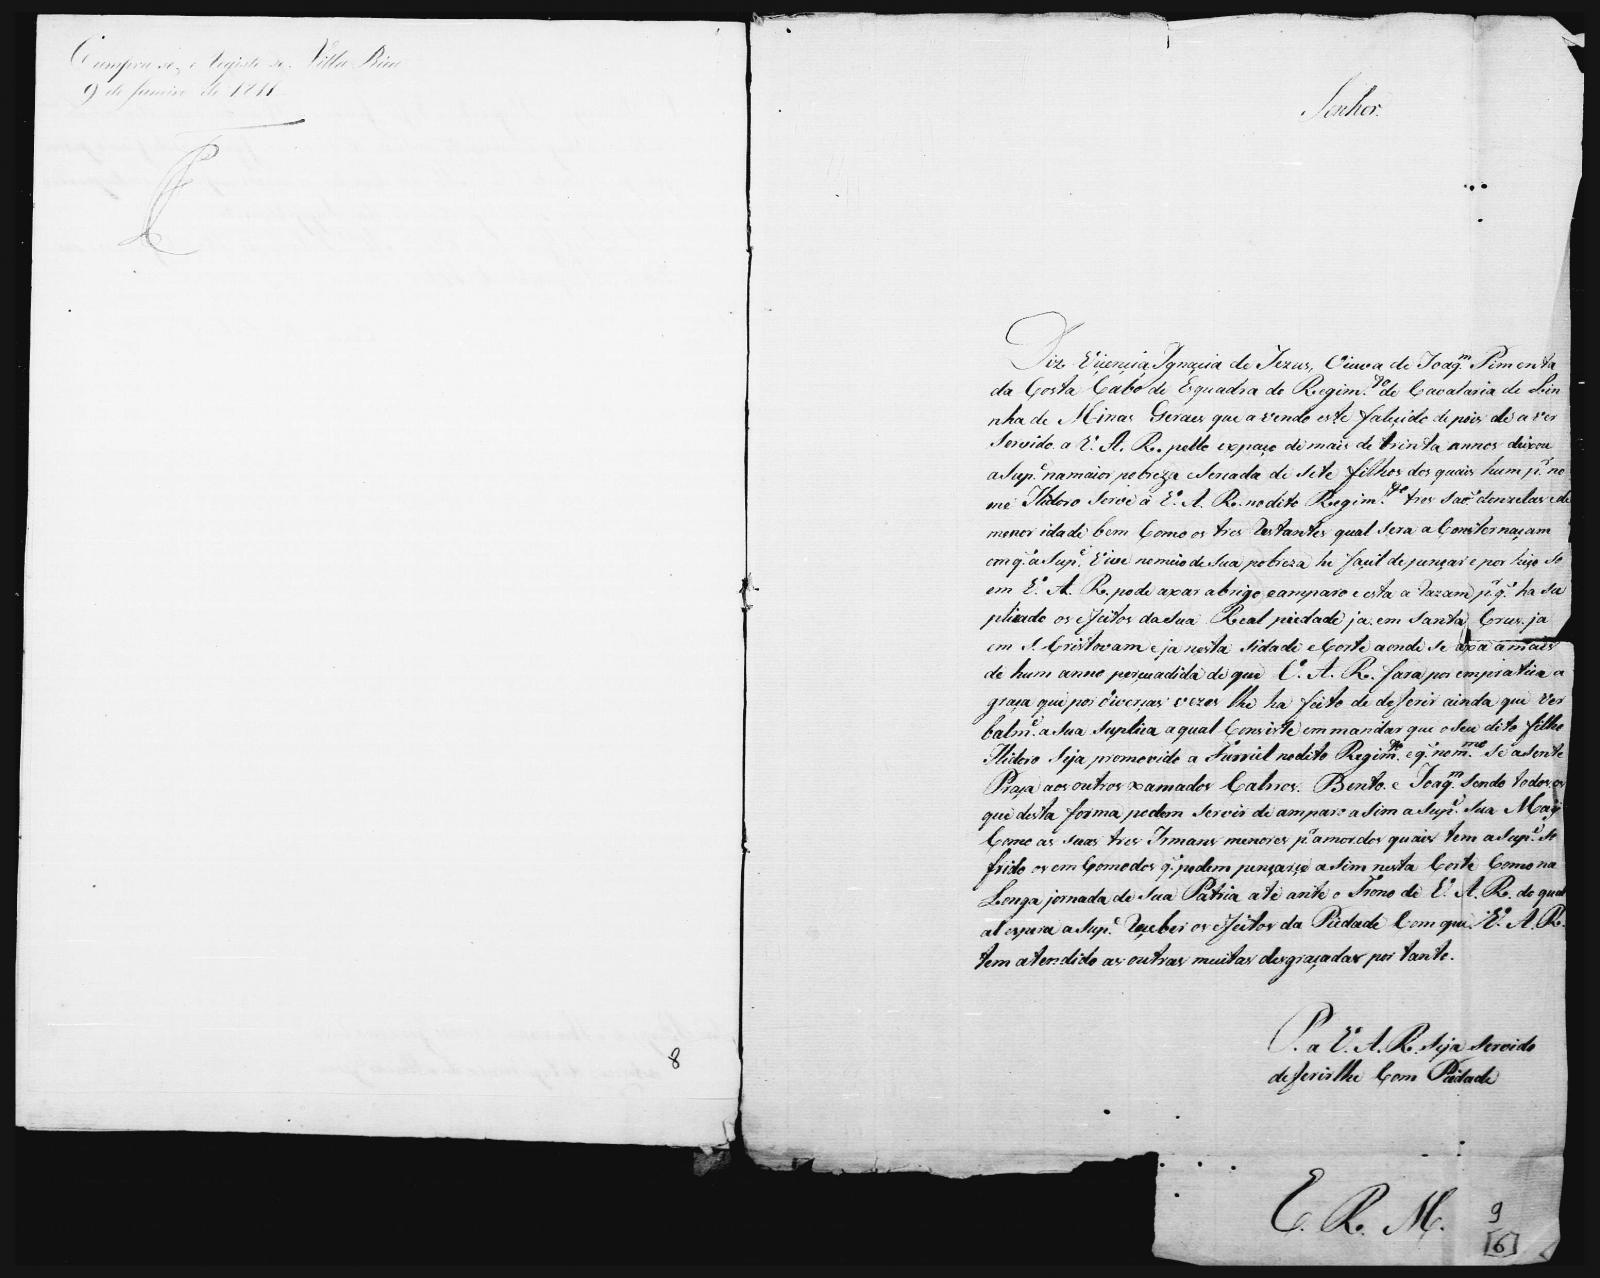 Cumpra se, e Registe se. Villa Rica
9 de Janeiro de 1811
8
Senhor.
Diz Viçençia Ignaçia de Jezus, Viuva de Joaq.m Pimenta
da Costa Cabo de Esquadra do Regim.to de Cavalaria de Lin
nha de Minas Geraes que avendo este faleçido depois de aver
Servido a V. A. R. pello espaço de mais de trinta annos deixou
a Sup.e na maior pobreza e Sercada de Sete filhos dos quais hum p.r no
me Ilidoro Serve a V. A. R. no dito Regim.to tres Saõ donzelas e de
menor idade bem Como os tres Restantes qual Sera a Consternaçam
em q. a Sup.e Vive no meio de Sua pobreza he façil de pençar e por hiço So
em V. A. R. pode axar abrigo e amparo e esta a Razam p.r q. ha Su
plicado os efeitos da Sua Real piedade ja em Santa Crus. ja
em S. Cristovam e ja nesta Sidade e Corte aonde Se axa a mais
de hum anno perçuadida de que V. A. R. fara por em pratica a
graça que por diverças vezes lhe ha feito de deferir ainda que Ver
balm.e a Sua Suplica a qual Consiste em mandar que o Seu dito filho
Ilidoro Seja promovido a Furriel no dito Regim.to e q. no m.mo Se asente
Praça aos outros xamados Calros. Bento. e Joaq.m Sendo todos os
que desta forma podem Servir de amparo asim a Sup.e Sua May
Como as Suas tres Irmans menores p.r amor dos quais tem a Sup.e So
frido os em Comodos q. podem pençarçe asim nesta Corte Como na
Longa jornada de Sua Patria ate ante o Trono de V. A. R. do qual
al espera a Sup.e Reçeber os efeitos da Piedade Com que V. A. R.
tem atendido as outras muitas desgraçadas por tanto.
P. a V. A. R. Seja Servido
deferirlhe Com Piedade
E. R. M.
9
[6]